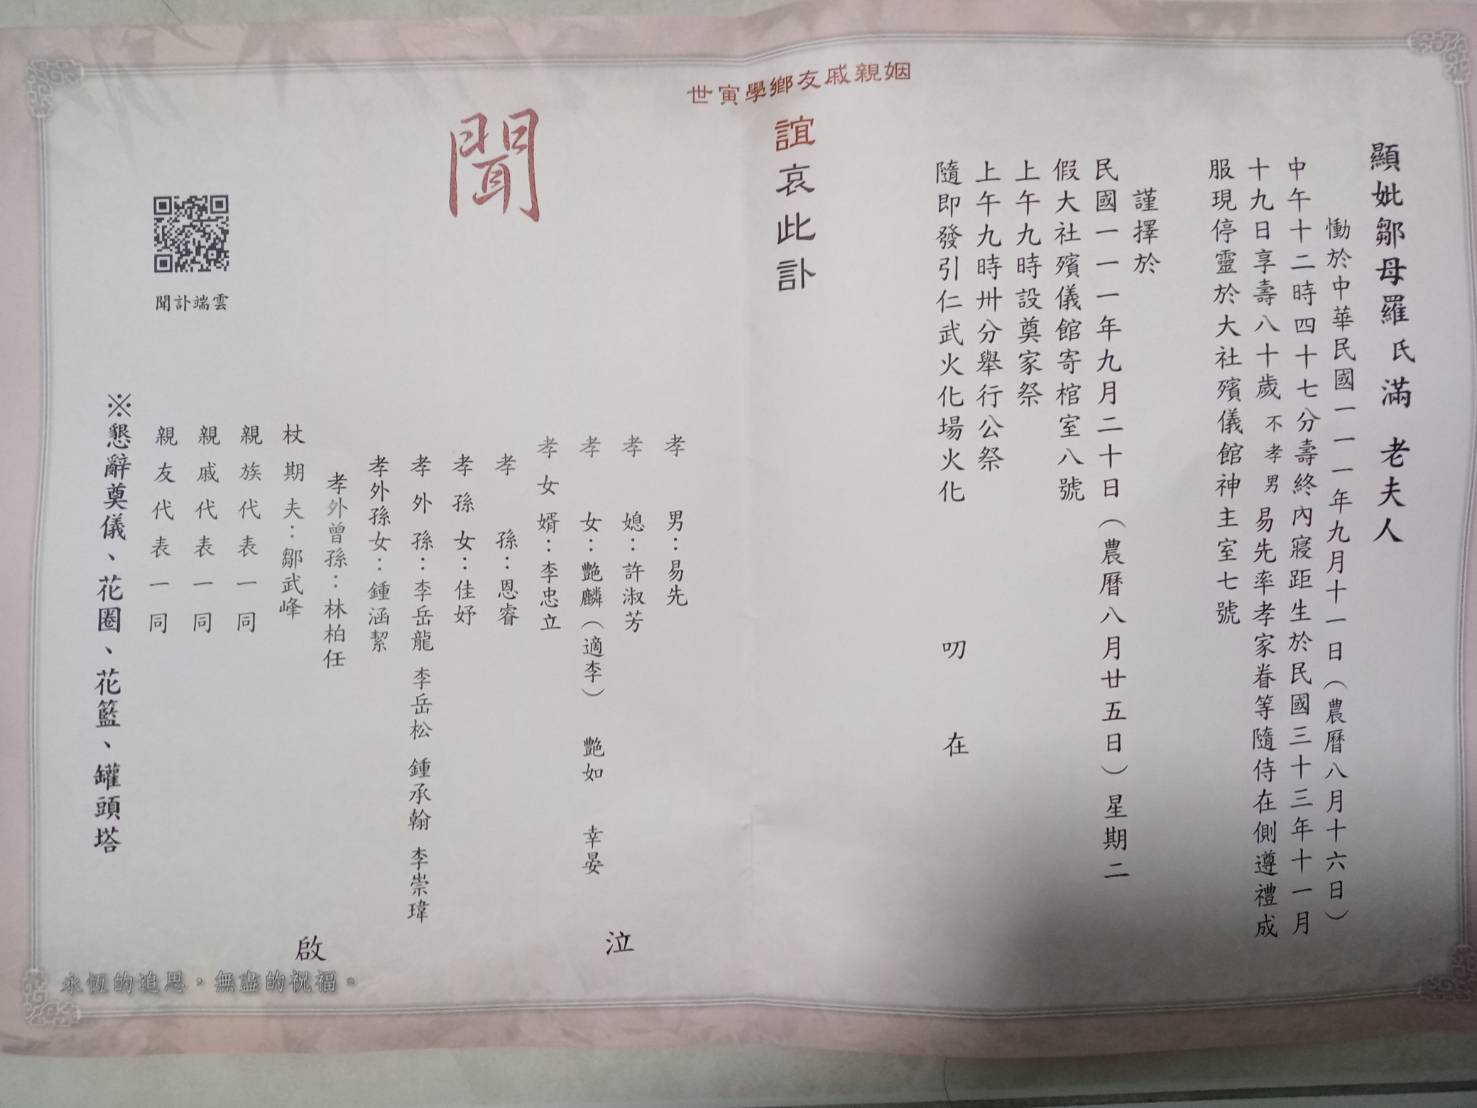 顯妣鄒母羅氏滿 老夫人
慟於中華民國一一一年九月十一日(農曆八月十六日)
中午十二時四十七分壽終內寢距生於民國三十三年十一月
十九日享壽八十歲 不孝男 易先率孝家眷等隨侍在側遵禮成
服現停靈於大社殯儀館神主室七號
謹擇於
民國一一一年九月二十日(農曆八月廿五日)星期二
假大社殯儀館寄棺室八號
上午九時設奠家祭
上午九時卅分舉行公祭
隨即發引仁武火化場火化 叨在
世寅學鄉友戚親姻
誼哀此訃
聞
孝男:易先
孝媳:許淑芳
孝女:艷麟(適李) 艷如 幸晏
孝女婿:李忠立
孝孫:恩睿
孝孫女:佳妤
孝外孫:李岳龍 李岳松 鍾承翰 李崇瑋
孝外孫女:鍾涵絜
孝外曾孫:林柏任
杖期夫:鄒武峰
親族代表一同
親戚代表一同
親友代表一同
泣
啟
※懇辭奠儀、花圈、花籃、罐頭塔
聞訃端雲
永恆的追思,無盡的祝福。